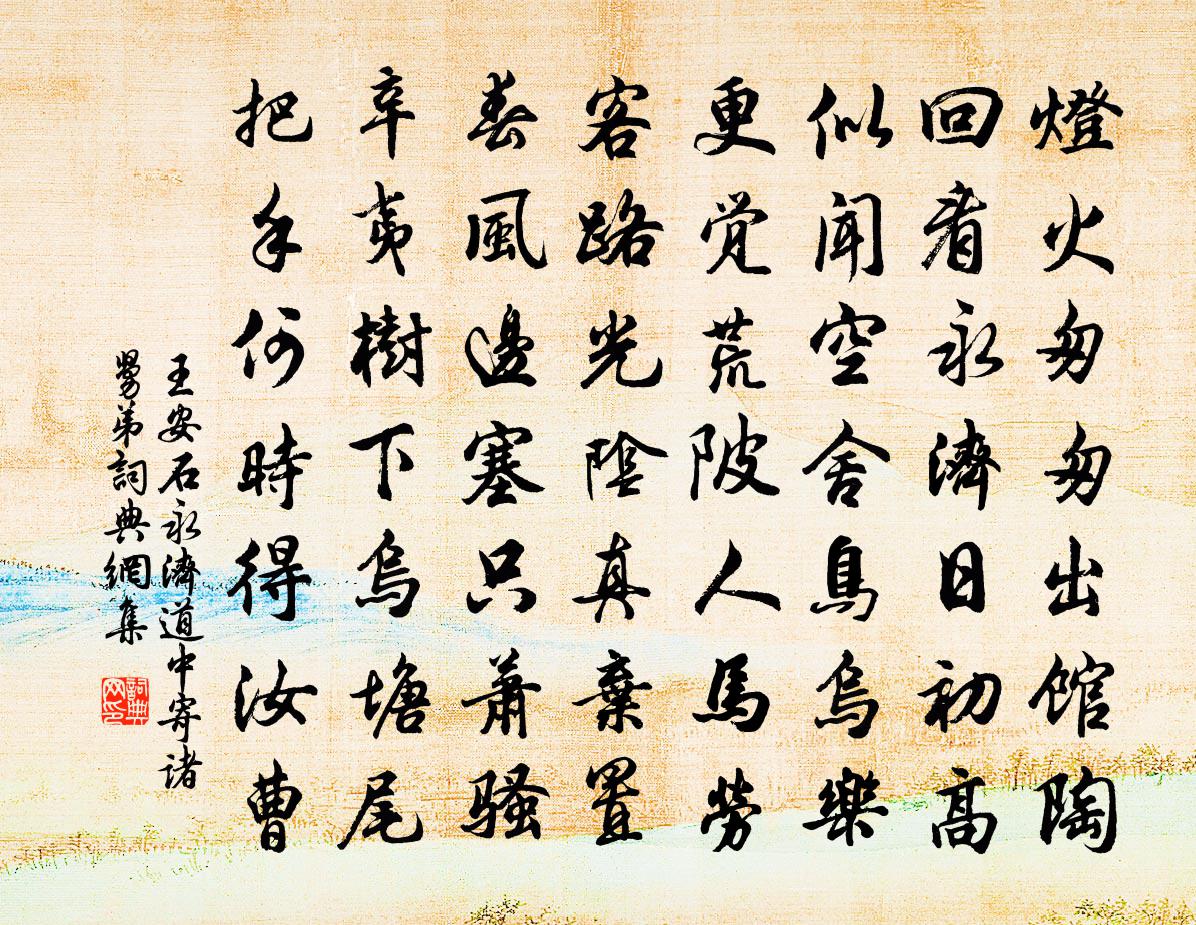 燈火匆匆出館陶
回看永濟日初高
似聞空舍鳥烏樂
更覺荒陂人馬勞
客路光陰真棄置
春風邊塞只蕭騷
辛夷樹下烏塘尾
把手何時得汝曹
王安石永濟道中寄諸
舅弟詞典網集
詞典
网印